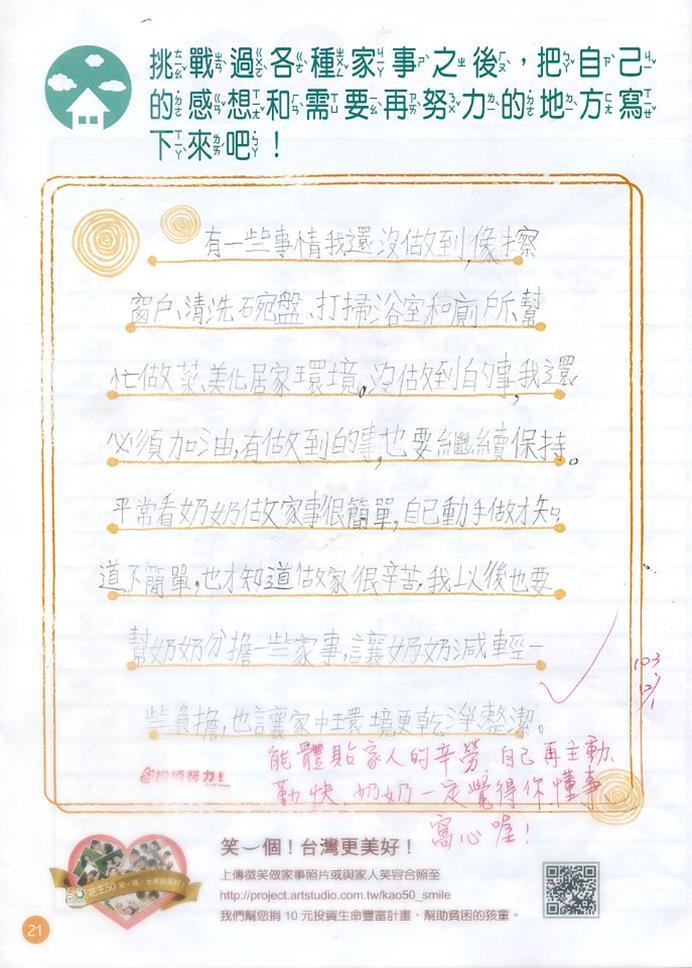 挑戰過各種家事之後，把自己
的感想和需要再努力的地方寫
下來吧！
有一些事情我還沒做到,像擦
窗戶、清洗碗盤、打掃浴室和廁所、幫
忙做菜、美化居家環境。沒做到的事,我還
必須加油,有做到的事,也要繼續保持。
平常看奶奶做家事很簡單,自己動手做才知
道不簡單,也才知道做家很辛苦,我以後也要
幫奶奶分擔一些家事,讓奶奶減輕一
些負擔,也讓家中環境更乾淨整潔。
103
12/1
能體貼家人的辛勞,自己再主動、
勤快,奶奶一定覺得你懂事、
窩心喔!
努力!
笑一個！台灣更美好！
上傳微笑做家事照片或與家人笑容合照至
http://project.artstudio.com.tw/kao50_smile
我們幫您捐 10 元投資生命豐富計畫，幫助貧困的孩童。
花王50 笑一個！台灣更美好
21